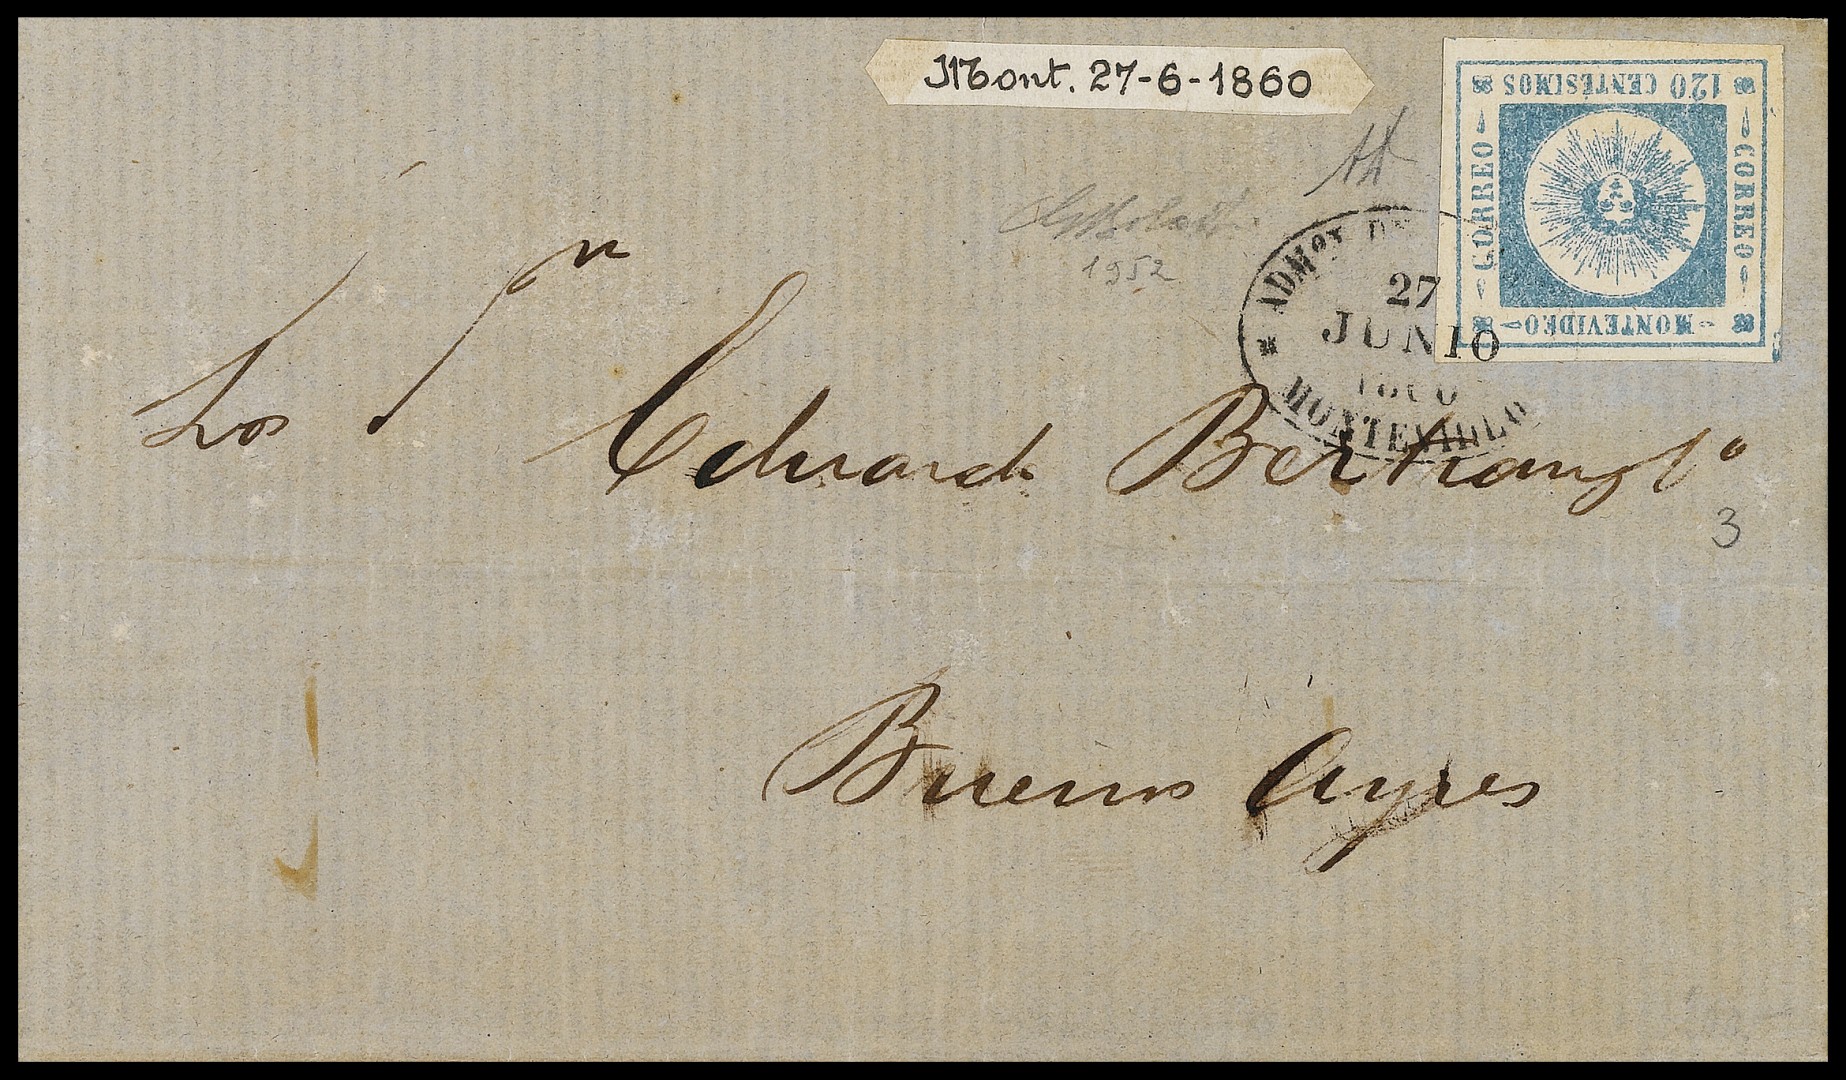 Mont. 27-6-1860
120 CENTÉSIMOS
CORREO
CORREO
MONTEVIDEO
1952
ADMON DE
27
JUNIO
1860
MONTEVIDEO
Los Sn
Eduardo
3
Buenos Ayres